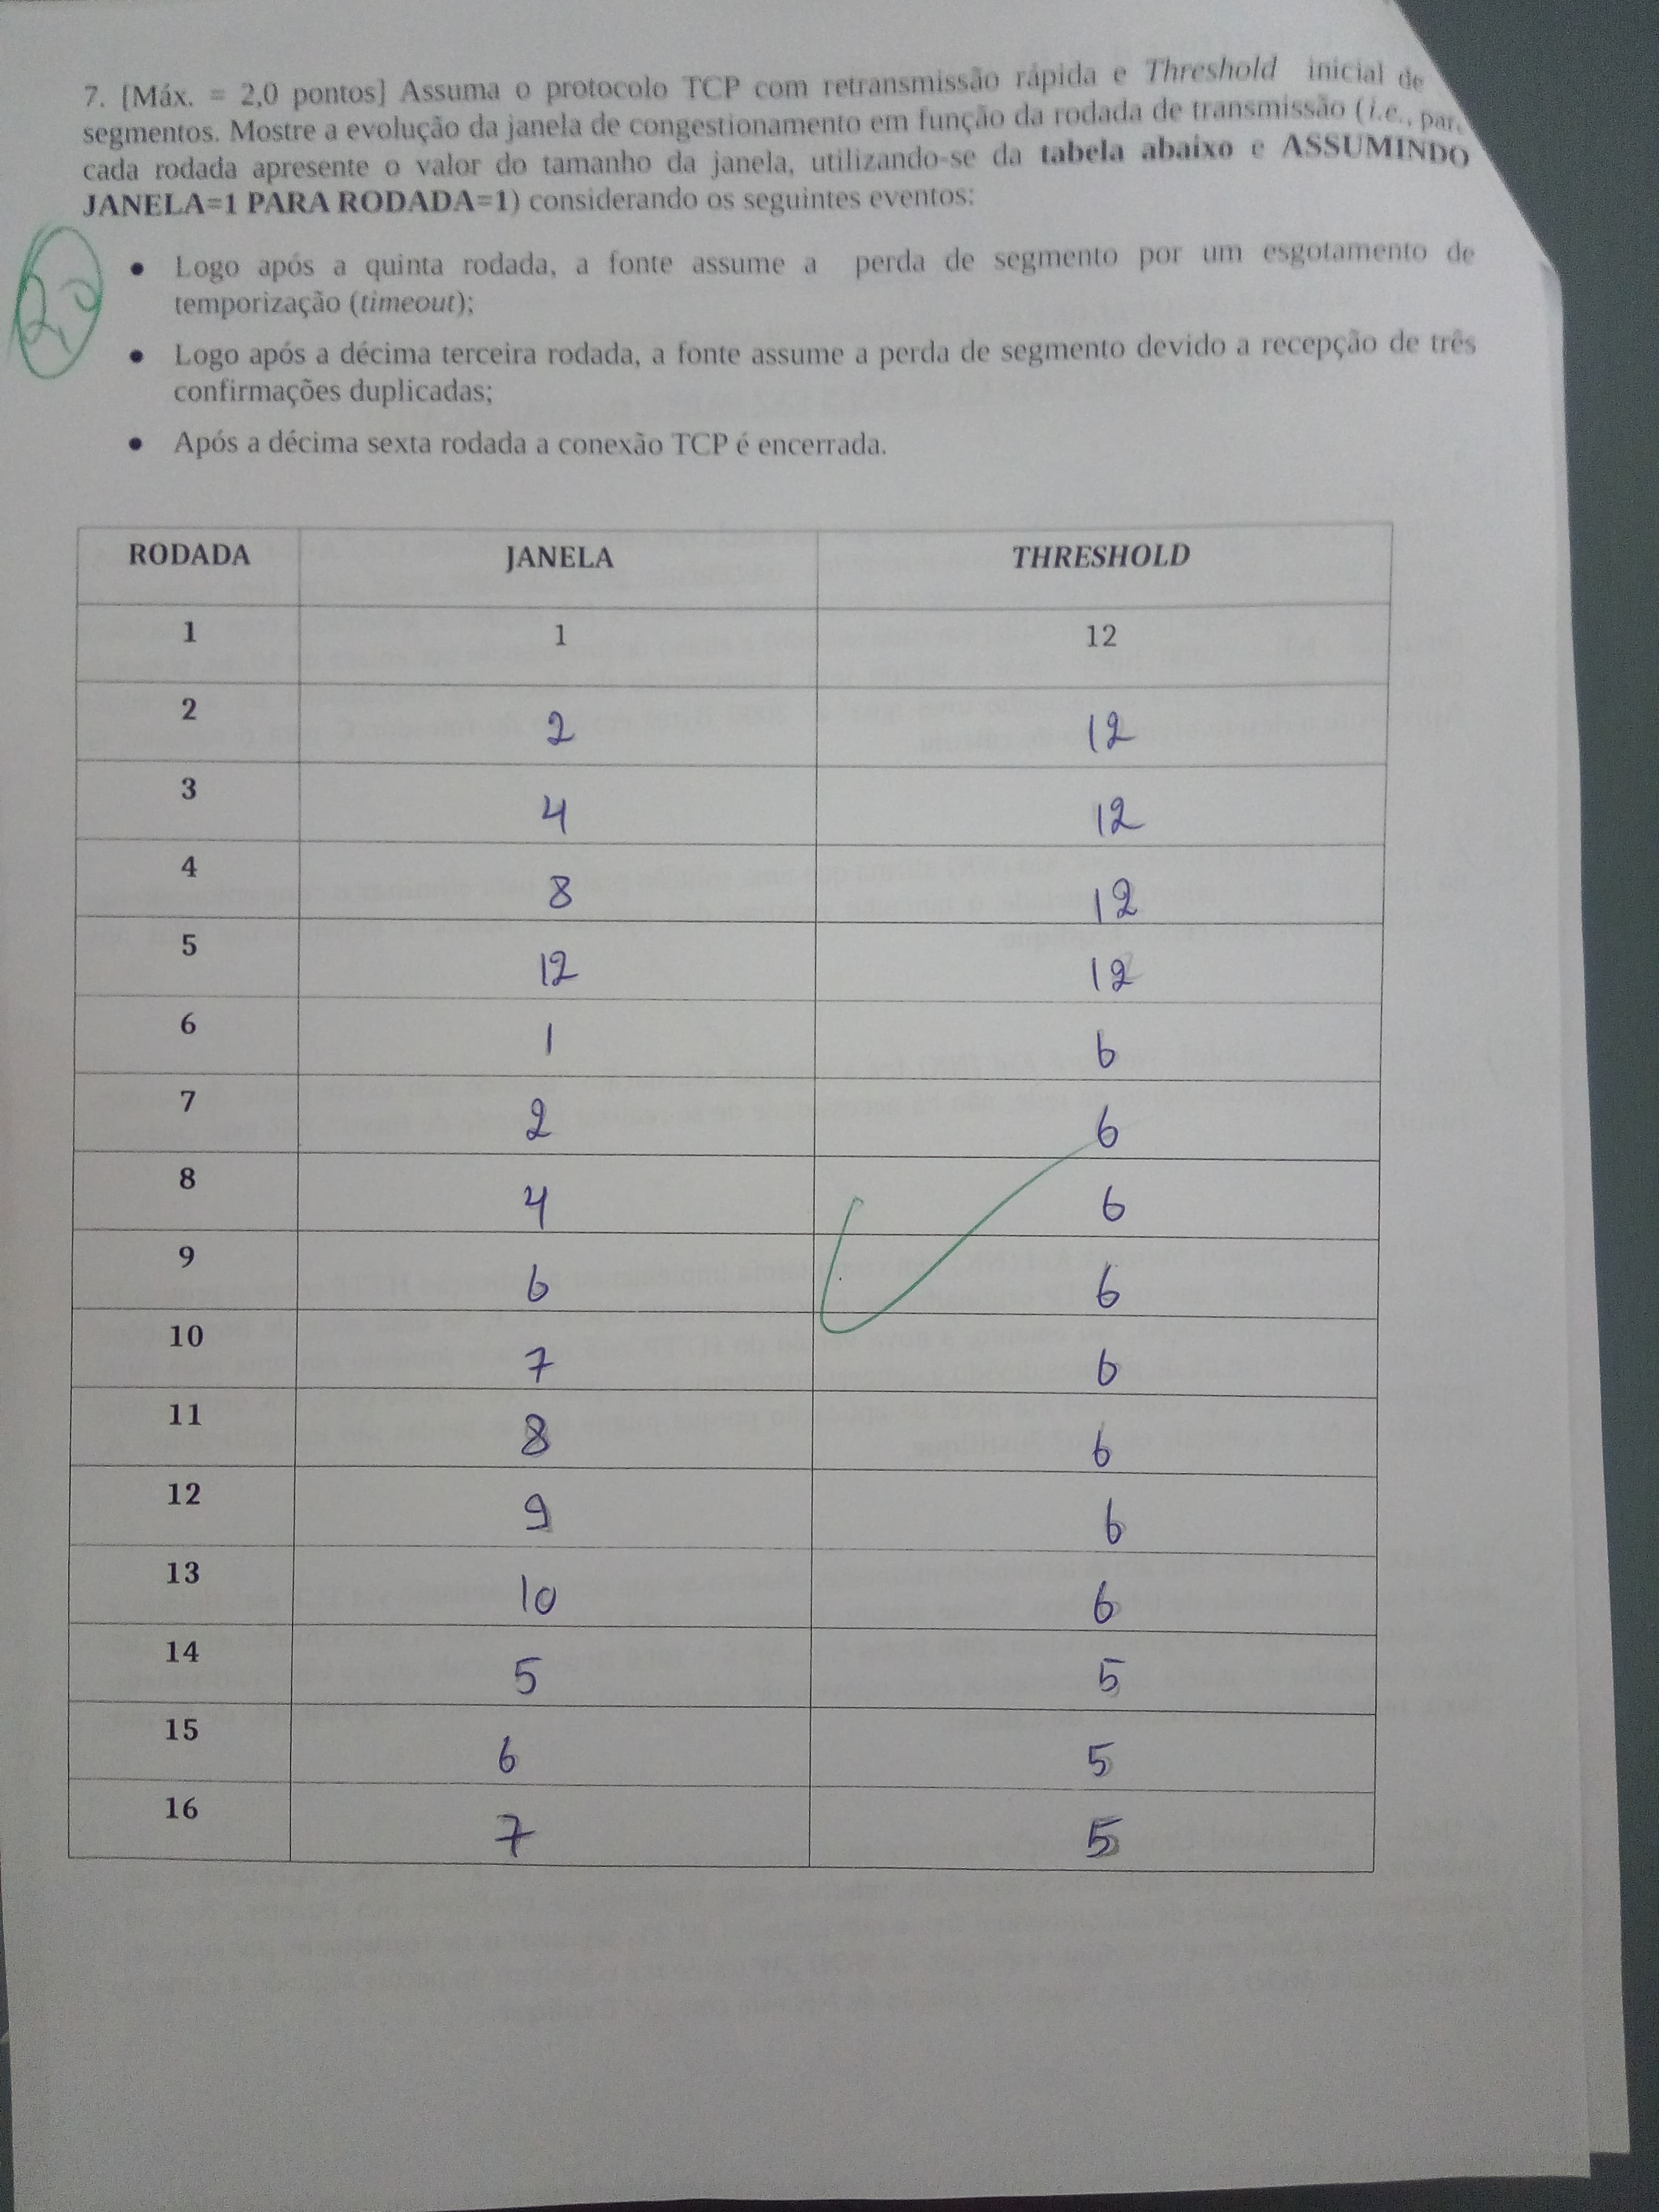 7. [Máx. = 2,0 pontos] Assuma o protocolo TCP com retransmissão rápida e Threshold inicial de
segmentos. Mostre a evolução da janela de congestionamento em função da rodada de transmissão (i.e.,
cada rodada apresente o valor do tamanho da janela, utilizando-se da tabela abaixo e ASSUMINDO
JANELA=1 PARA RODADA=1) considerando os seguintes eventos:
2,0
• Logo após a quinta rodada, a fonte assume a perda de segmento por um esgotamento de
temporização (timeout);
• Logo após a décima terceira rodada, a fonte assume a perda de segmento devido a recepção de três
confirmações duplicadas;
• Após a décima sexta rodada a conexão TCP é encerrada.
RODADA JANELA THRESHOLD
1 1 12
2 2 12
3 4 12
4 8 12
5 12 12
6 1 6
7 2 6
8 4 6
9 6 6
10 7 6
11 8 6
12 9 6
13 10 6
14 5 5
15 6 5
16 7 5